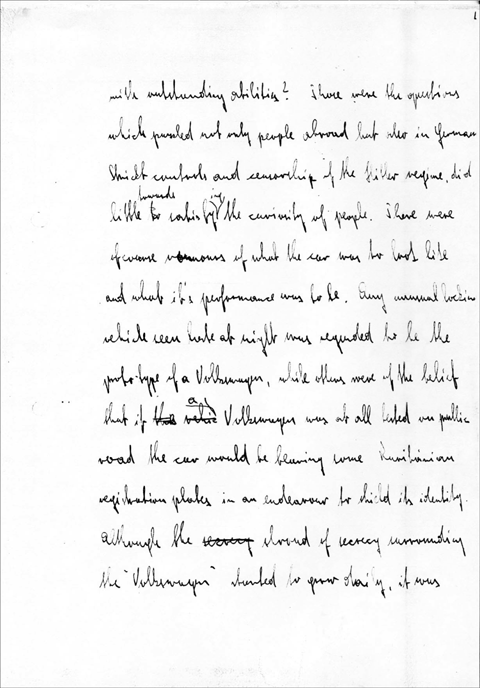 1
with outstanding abilities? There were the questions
which puzzled not only people abroad but also in German
Strict controls and censorship of the Hitler regime, did
towards ing
little to satisfy the curiosity of people. There were
of course rumours of what the car was to look like
and what it's performance was to be. Any unusual looking
vehicle seen late at night was regarded to be the
prototype of a Volkswagen, while others were of the belief
a
that if the Volkswagen was at all tested on public
road the car would be bearing some Ruritanian
registration plates in an endeavour to shield its identity.
Although the secrecy shroud of secrecy surrounding
the "Volkswagen" started to grow daily, it was